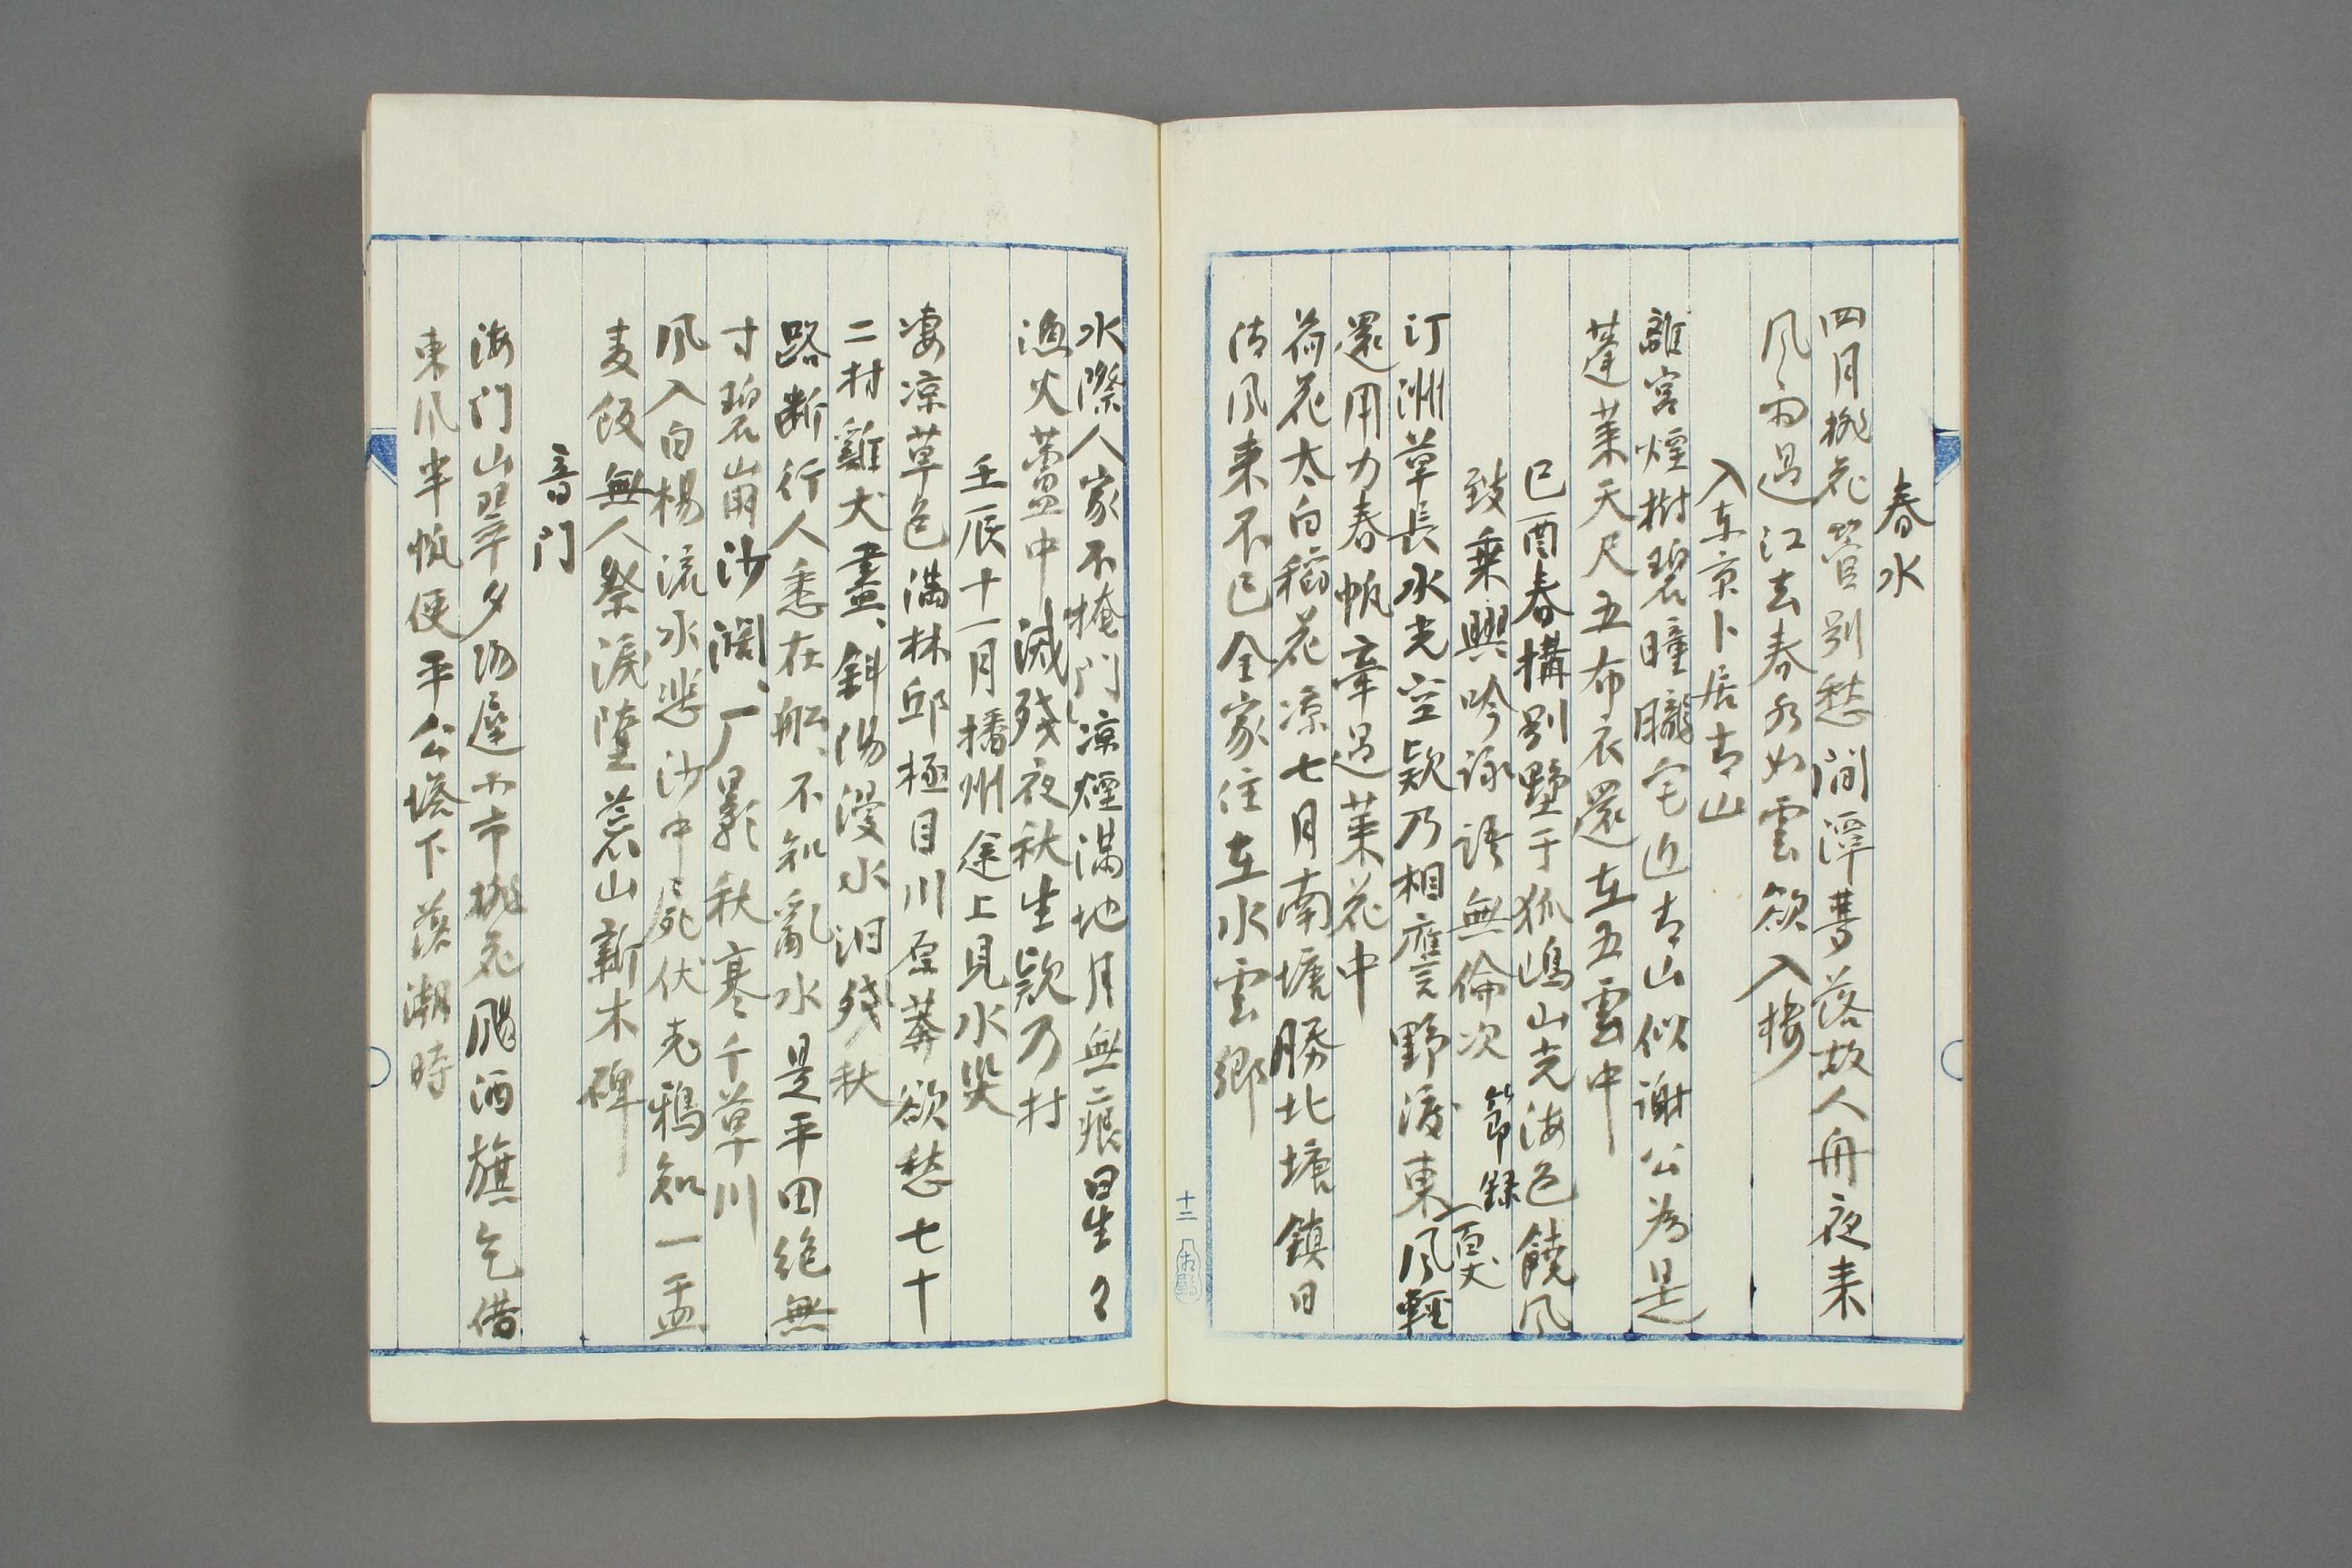 春水
四月桃花管別愁澗潭夢落故人舟夜来
風雨過江去春水如雲欲入楼
入东京卜居青山
離宮煙樹碧瞳朧宅近青山似謝公為是
蓬莱天尺五布衣還在五雲中
己酉春構別墅于狐嶋山光海色饒風
致乗輿吟詠語無倫次 節録二百丈
汀洲草長水光空欵乃相應言野渡東風輕
還用力春帆牽過菜花中
荷花太白稲花凉七月南塘勝北塘鎮日
清風来不已全家住在水雲郷
十二
水際人家不掩門凉煙満地月無痕星生々
漁火藁中滅殘夜秋生欵乃村
壬辰十一月播州途上見水災
凄凉草色満林邱極目川原莽欲愁七十
二村雞犬盡、斜陽漫水泪殘秋
路断行人悉在船、不知亂水是平田絶無
寸碧崩沙濶、一厂影秋寒千草川
風入白楊流水悲沙中屍伏老鴉知一盂
麦飯無人祭涙墮荒山新木碑
音門
海門山翠夕陽遅小市桃花颺酒旗乞借
東風半帆便平公塔下落潮時